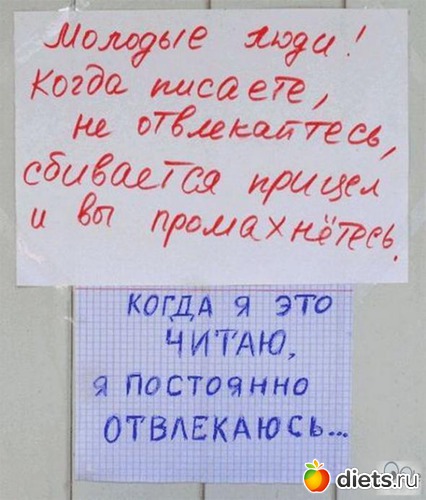 Молодые люди!
Когда писаете,
не отвлекайтесь,
сбивается прицел
и вы промахнётесь.
КОГДА Я ЭТО
ЧИТАЮ,
Я ПОСТОЯННО
ОТВЛЕКАЮСЬ...
diets.ru